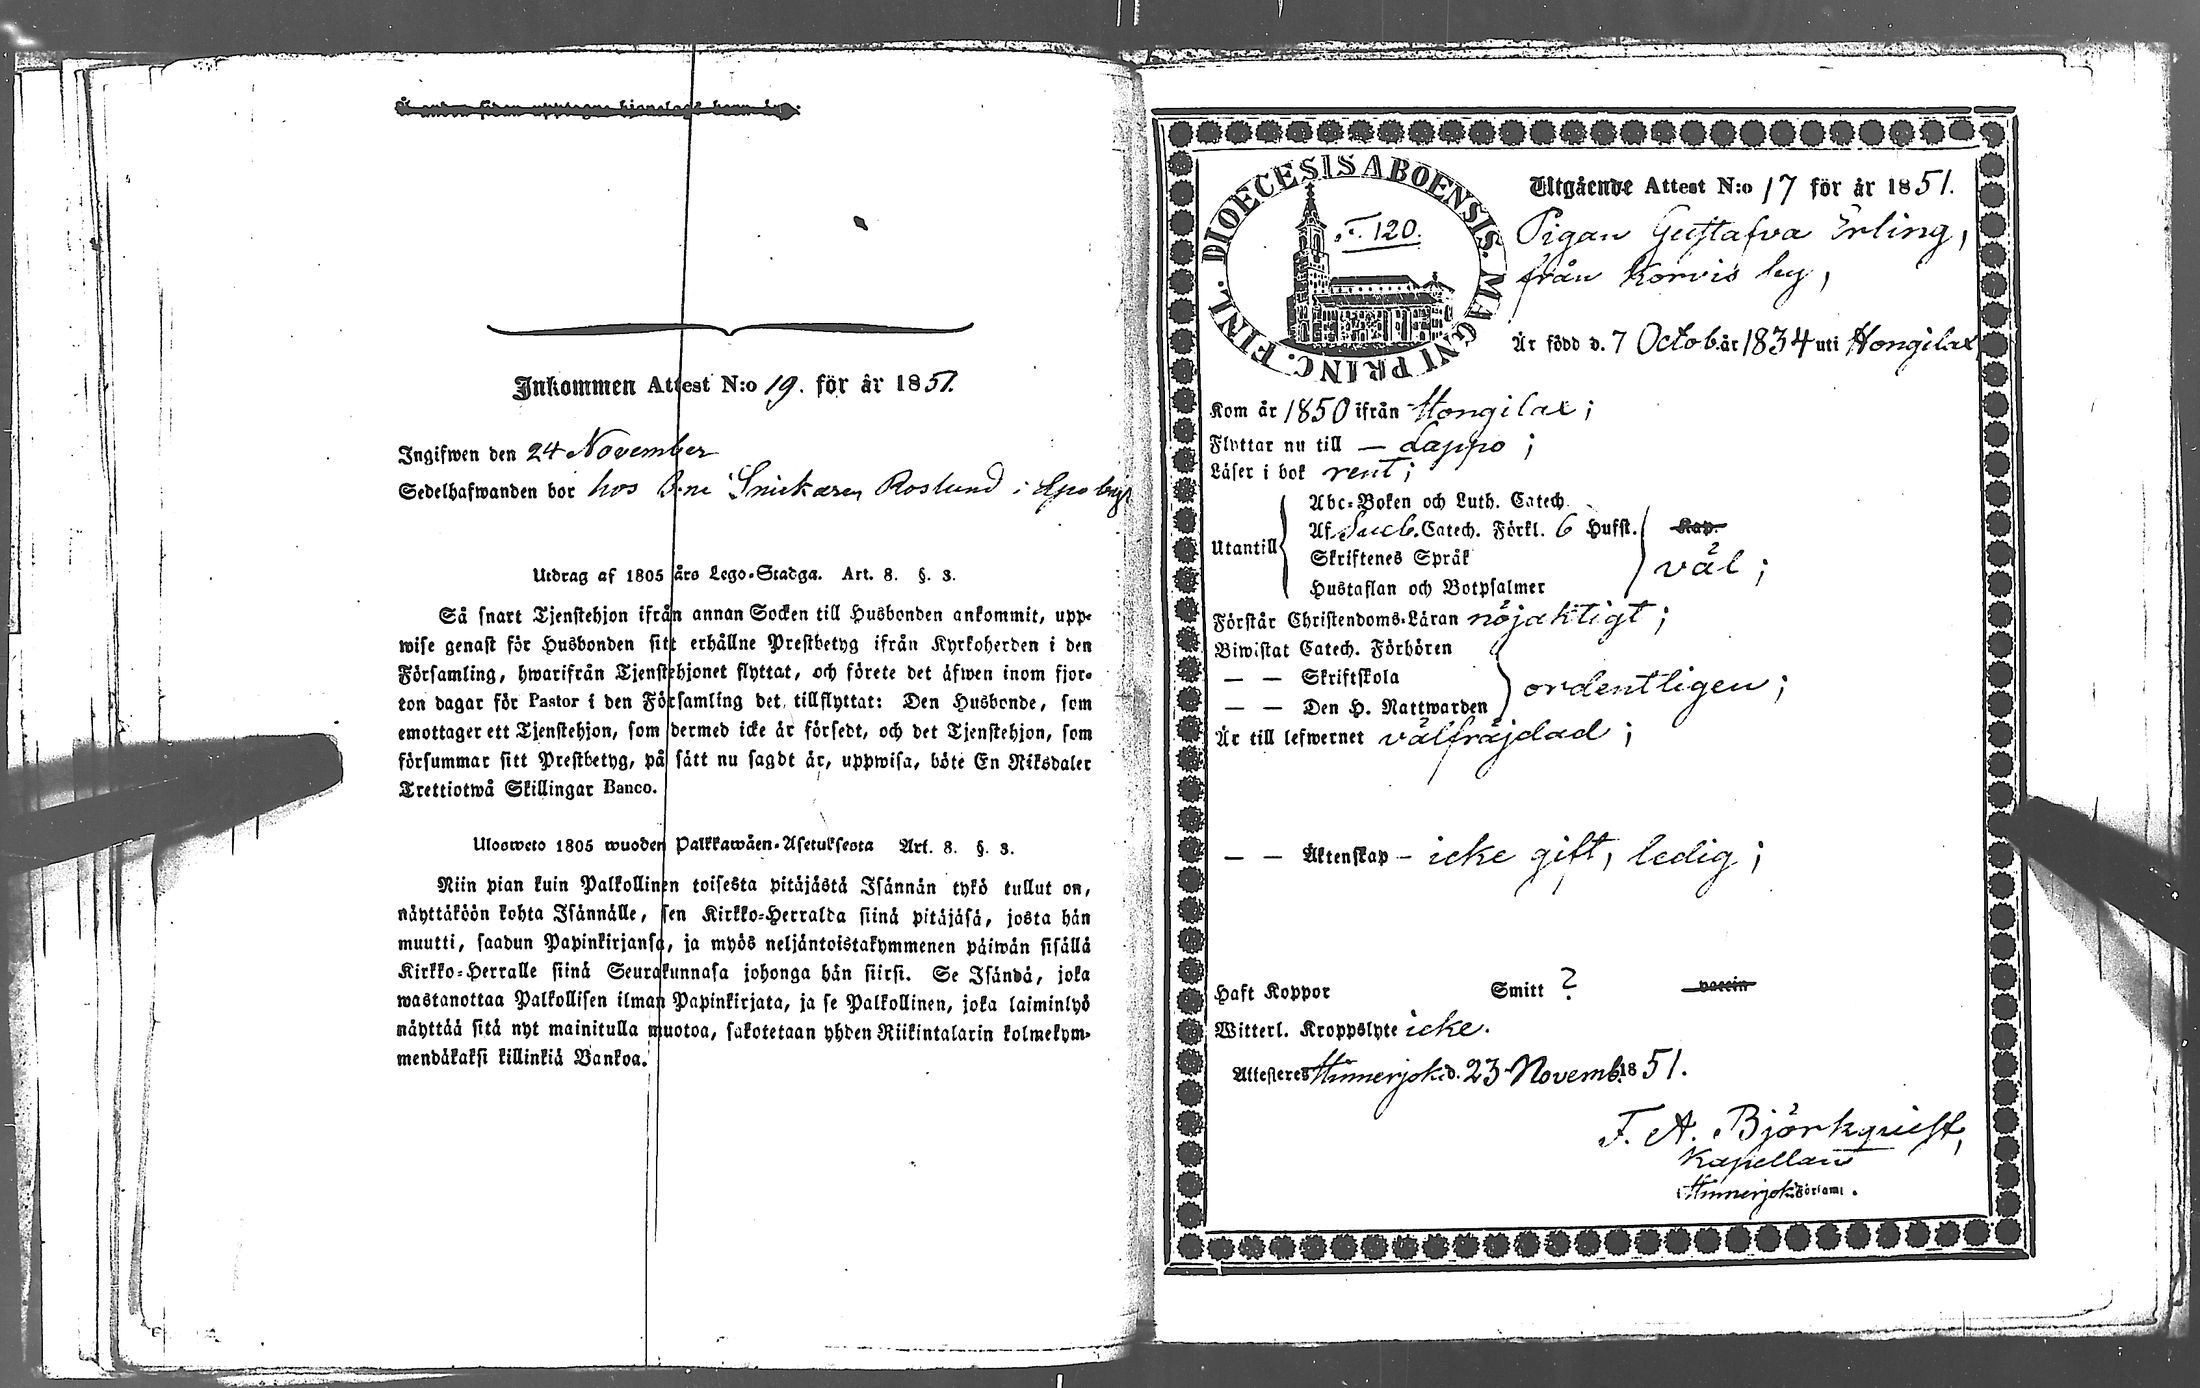 Inkommen Attest N:o 19. för år 1851.
Ingifwen den 24 November
Sedelhafwanden bor hos Snickaren Roslund i
Utdrag af 1805 års Lego-Stadga. Art. 8. §. 3.
Så snart Tjenstehjon ifrån annan Socken till Husbonden ankommit, upp-
wise genast för Husbonden sitt erhållne Prestbetyg ifrån Kyrkoherden i den
Församling, hwarifrån Tjenstehjonet flyttat, och förete det äfwen inom fjor-
ton dagar för Pastor i den Församling det tillflyttat: Den Husbonde, som
emottager ett Tjenstehjon, som dermed icke är försedt, och det Tjenstehjon, som
försummar sitt Prestbetyg, på sätt nu sagdt är, uppwisa, böte En Riksdaler
Trettiotwå Skillingar Banco.
Ulosweto 1805 wuoden Palkkawäen-Asetuksesta Art. 8. §. 3.
Niin pian kuin Palkollinen toisesta pitäjästä Isännän tykö tullut on,
näyttäköön kohta Isännälle, sen Kirkko-Herralda siinä pitäjäsä, josta hän
muutti, saadun Papinkirjansa, ja myös neljäntoistakymmenen päiwän sisällä
Kirkko-Herralle siinä Seurakunnasa johonga hän siirsi. Se Isändä, joka
wastanottaa Palkollisen ilman Papinkirjata, ja se Palkollinen, joka laiminlyö
näyttää sitä nyt mainitulla muotoa, sakotetaan yhden Riikintalarin kolmekym-
mendäkaksi killinkiä Bankoa.
DIOECESIS ABOENSIS. MAGNI PRINC. FINL.
F. 120.
Utgående Attest N:o 17 för år 1851.
Pigan Gustafva Erling,
från Korvis by,
Är född d. 7 Octob. år 1834 uti Hongilax
Kom år 1850 ifrån Hongilax;
Flyttar nu till — Lappo;
Läser i bok rent;
Utantill
Abc-Boken och Luth. Catech.
Af Sveb. Catech. Förkl. 6 Hufst. Kap.
Skriftenes Språk
Hustaflan och Botpsalmer
väl;
Förstår Christendoms-Läran nöjaktigt;
Biwistat Catech. Förhören
— — Skriftskola
— — Den H. Nattwarden
ordentligen;
Är till lefwernet välfräjdad;
— — Äktenskap - icke gift, ledig;
Haft Koppor Smitt ? vaccin
Witterl. Kroppslyte icke.
Attesteres Hinnerjoki d. 23 Novemb. 1851.
F. A. Björkqvist,
Kapellan
i Hinnerjoki Församl.